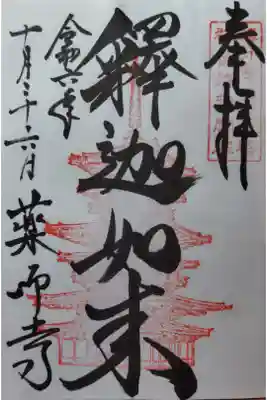 奉拝
釋迦如来
令和六年
十月二十六日
薬師寺